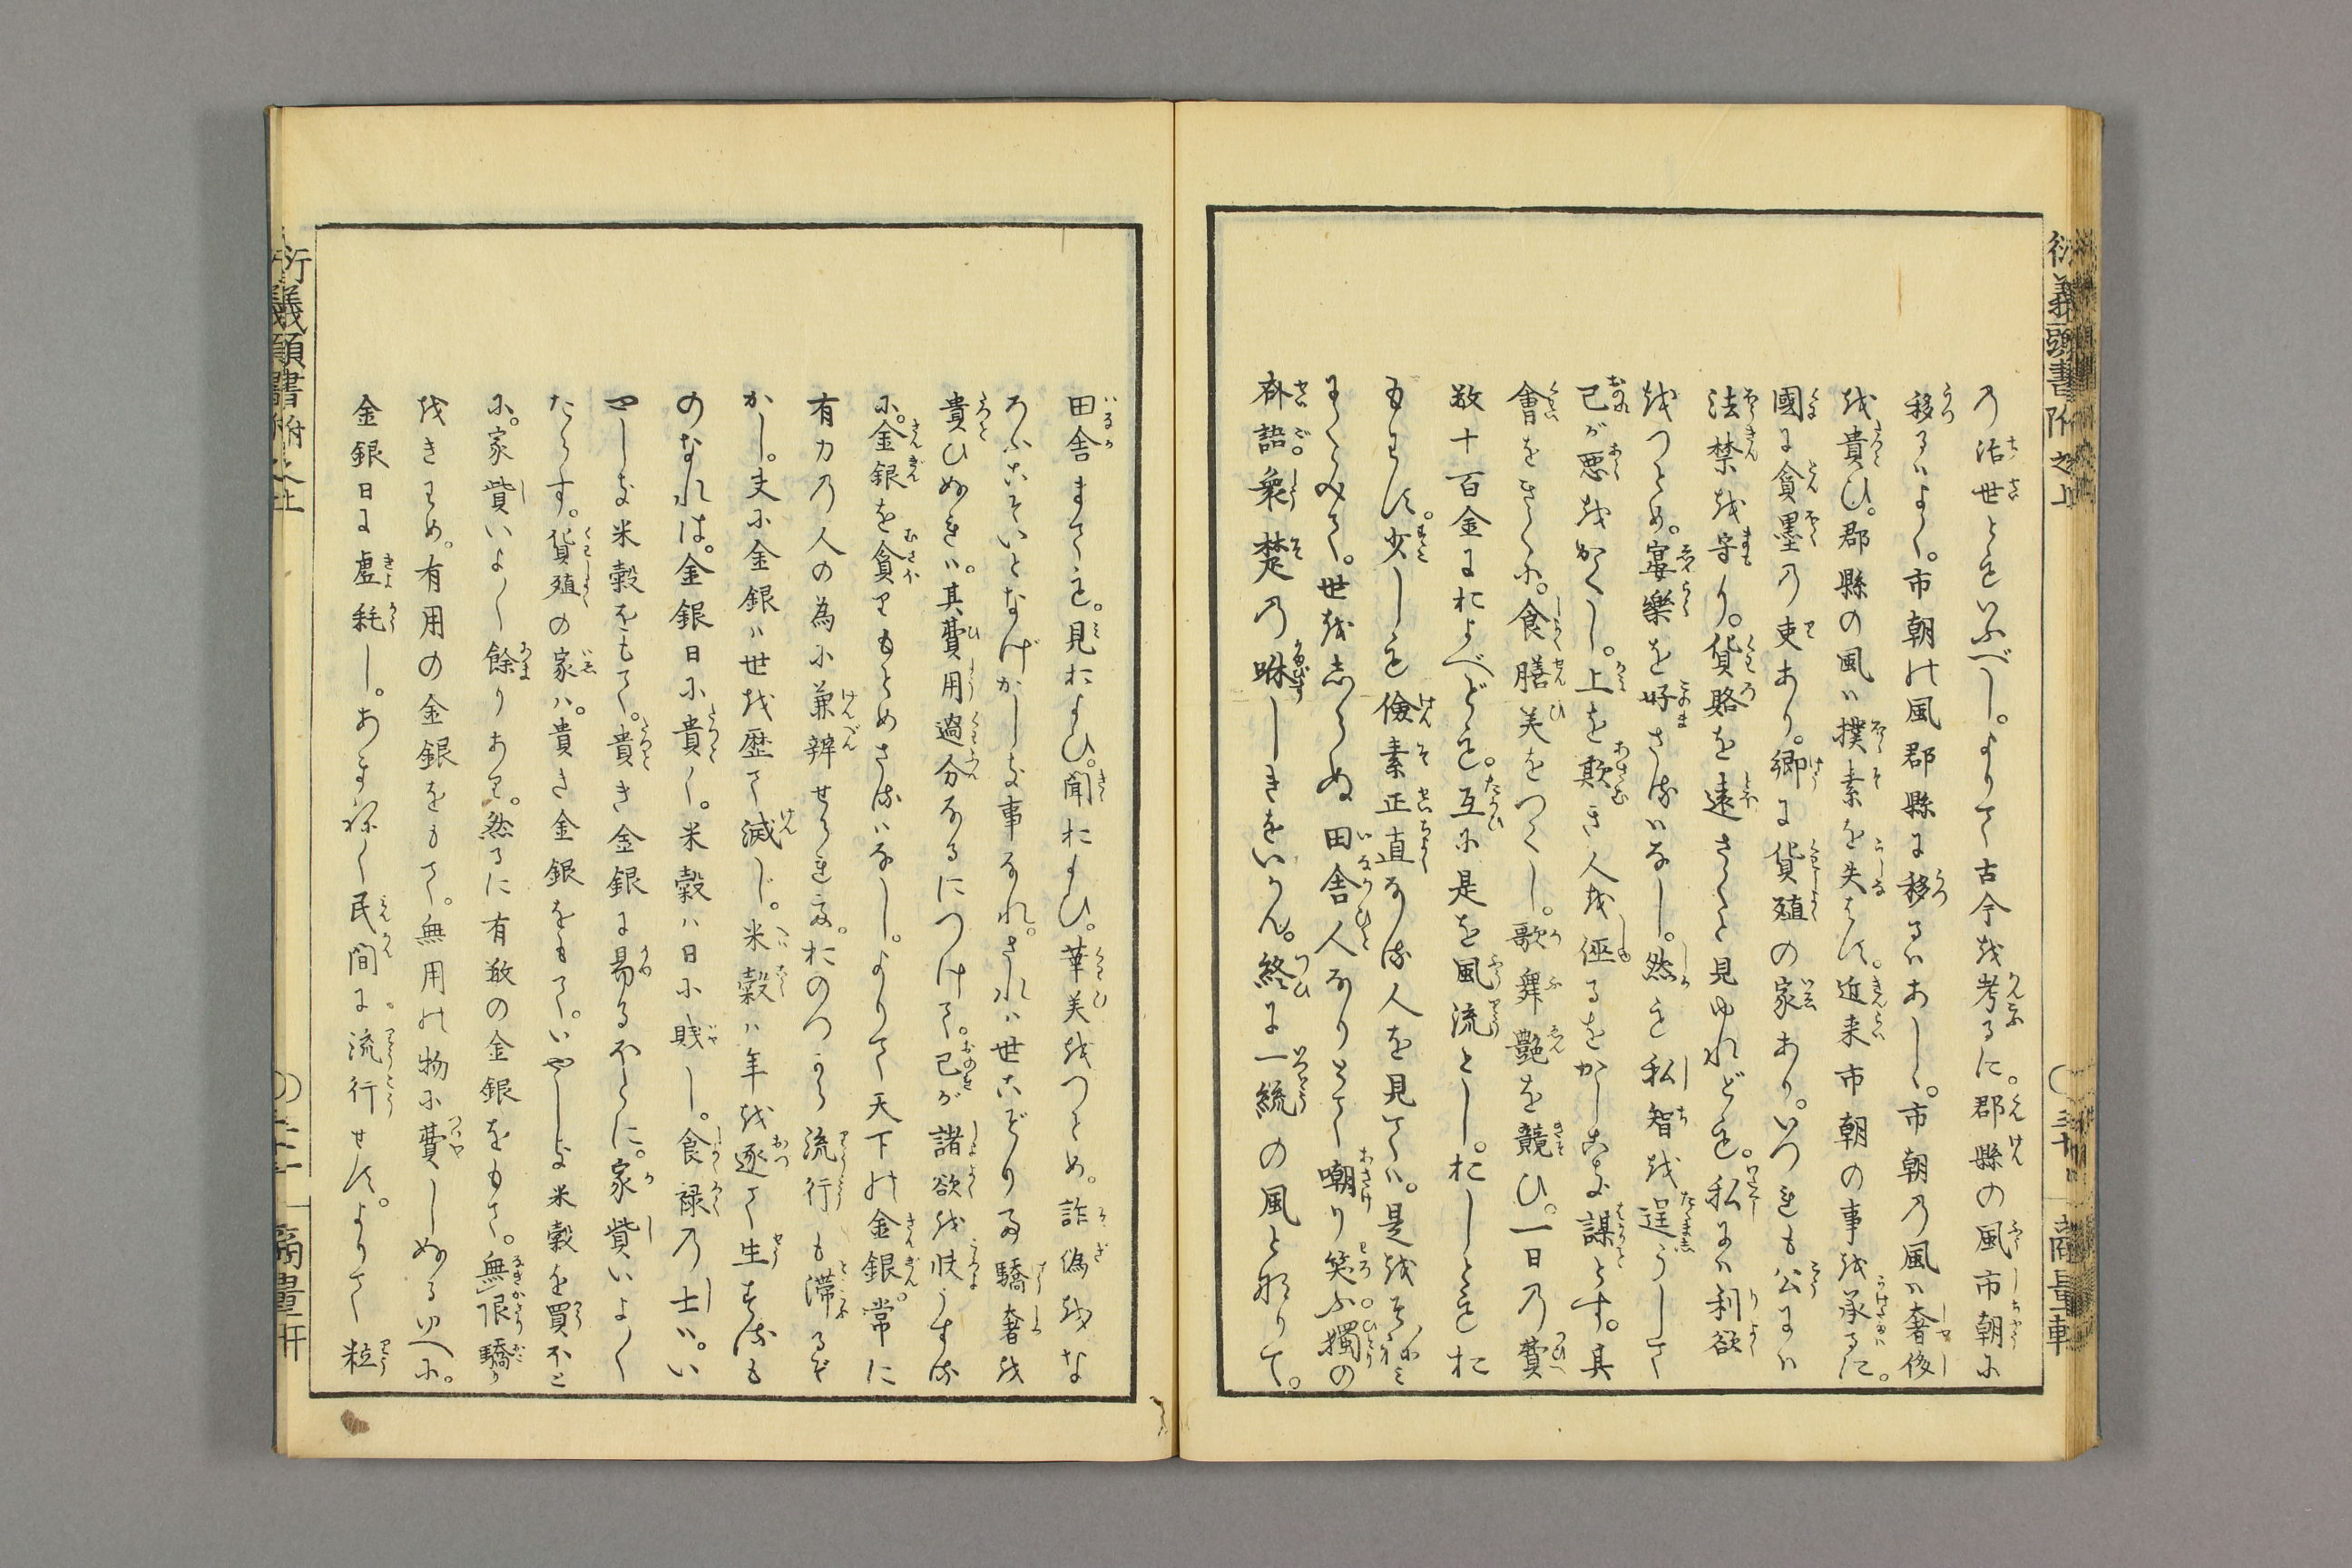 の治世ともいふべし。よりて古今を考るに。郡縣の風市朝に
移るハよく。市朝の風郡縣に移るハあしく。市朝の風ハ奢侈
を貴ひ。郡縣の風ハ撲素を失はす。近来市朝の事を承るに。
國に貪墨の吏あり。郷に貨殖の家あり。いつれも公にハ
法禁を守り。貨賂を遠さくと見ゆれども。私にハ利欲
をつとめ。宴樂を好まさるハなし。然も私智を逞うして
己が悪をかくし。上を欺き人を誣るをかしこき謀とす。其
會をきくに。食膳美をつくし。歌舞艶を競ひ。一日の費
数十百金におよべども。互に是を風流とし。おしともお
もはす。少しも儉素正直なる人を見てハ。是をそねミ
にくみて。世をしらぬ田舎人なりとて嘲り笑ふ。獨の
斉語。衆楚の咻しきをいかん。終に一統の風と成りて。
田舎まても。見およひ。聞およひ。華美をつとめ。詐偽をな
ろふこそいとなげかしき事なれ。されハ世こぞりて驕奢を
貴ひぬきハ。其費用過分なるにつけて。己が諸欲を快うする
に。金銀を貪りもとめさるハなし。よりて天下の金銀。常に
有力の人の為に兼辨せられて。おのつから流行も滞るぞ
かし。夫に金銀ハ世を歴て減じ。米穀ハ年を逐て生するも
のなれは。金銀日に貴く。米穀ハ日に賎し。食禄の士ハ。い
やしき米穀をもて。貴き金銀に易るほとに。家貲いよく
たらす。貨殖の家ハ。貴き金銀をもて。いやしき米穀を買ほと
に。家貲いよく餘りあり。然るに有数の金銀をもて。無限驕り
をきはめ。有用の金銀をもて。無用の物に費しぬるゆへに。
金銀日に虚耗し。あまねく民間に。流行せす。よりて粒